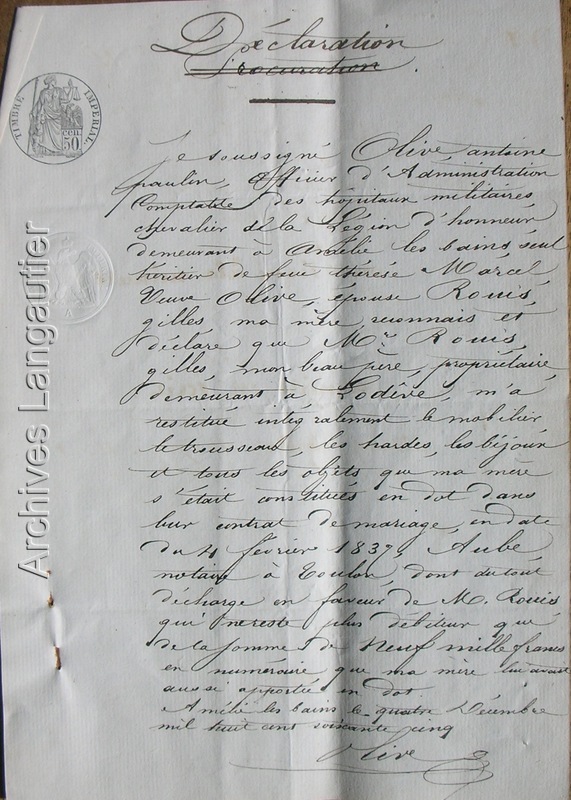 Déclaration
Procuration.
TIMBRE IMPERIAL
50 cen.
Je soussigné Olive, antoine
paulin, Officier d'Administration
Comptable des hôpitaux militaires
chevalier de la Légion d'honneur
demeurant à Amélie les bains, seul
héritier de feue thérèse Marcel
Veuve Olive, épouse Rouis,
gilles, ma mère, reconnais et
déclare que Mr. Rouis,
gilles, mon beau père, propriétaire,
demeurant à Lodève, m'a
restitué intégralement le mobilier
le trousseau, les hardes, les bijoux
et tous les objets que ma mère
s'était constitués en dot dans
leur contrat de mariage, en date
du 4 février 1837, Aube,
notaire à Toulon, dont du tout
décharge en faveur de M. Rouis
qui ne reste plus débiteur que
de la somme de Neuf mille francs
en numéraire que ma mère lui avait
aussi apportée en dot.
Amélie les bains le quatre Décembre
mil huit cent soixante cinq
Olive
Archives Langautier